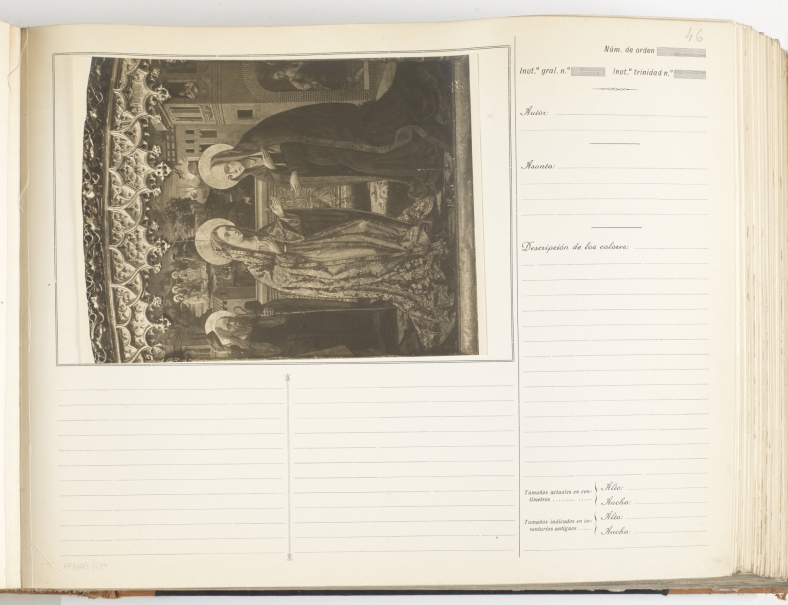 46
Núm. de orden
Invt.º gral. n.º Invt.º trinidad n.º
Autor:
Asunto:
Descripción de los colores:
Tamaños actuales en cen-
tímetros
Alto:
Ancho:
Tamaños indicados en in-
ventarios antiguos
Alto:
Ancho: